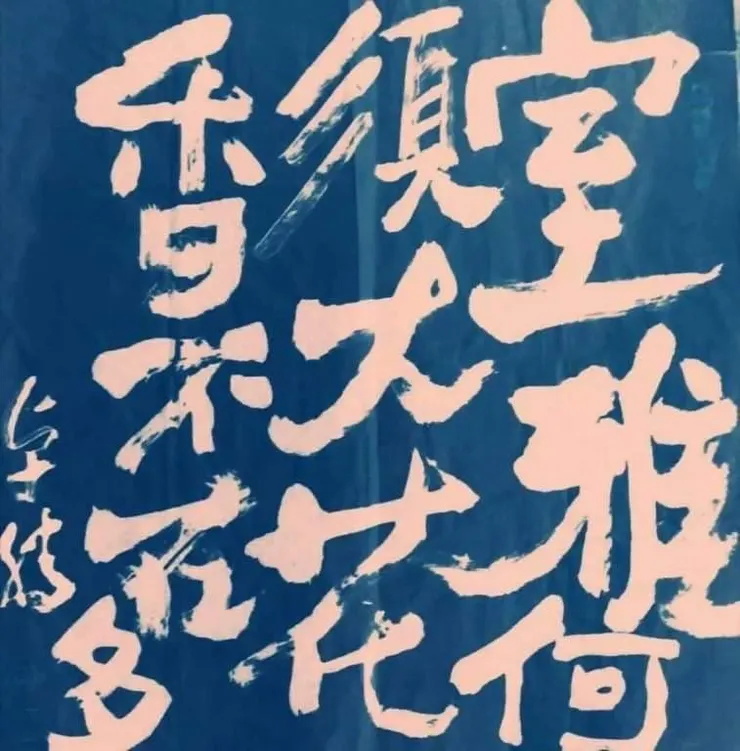 室雅何
須大花
香不在多